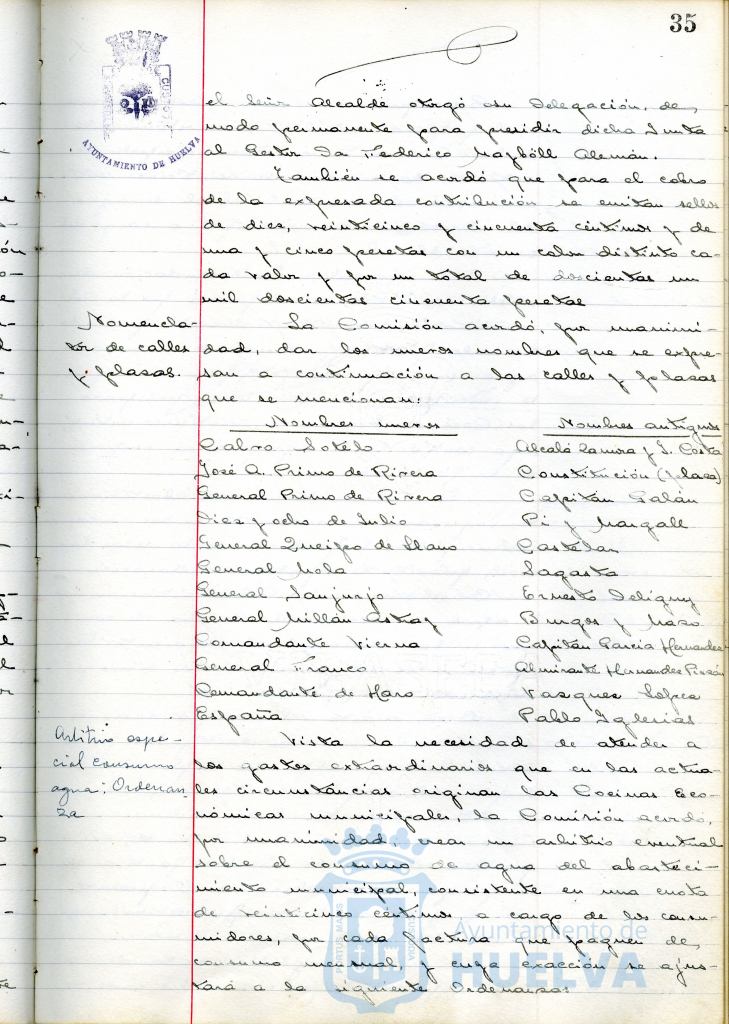 35
AYUNTAMIENTO DE HUELVA
el Señor Alcalde otorgó su Delegación, de
modo permanente para presidir dicha Junta
al Gestor Dn Federico Mayböll Alemán.
También se acordó que para el cobro
de la expresada contribución se emitan sellos
de diez, veinticinco y cincuenta céntimos y de
una y cinco pesetas con un color distinto ca-
da valor y por un total de doscientas un
mil doscientas cincuenta pesetas
Nomencla-
tor de calles
y plazas.
La Comisión acordó, por unanimi-
dad, dar los nuevos nombres que se expre-
san a continuación a las calles y plazas
que se mencionan:
Nombres nuevos Nombres antiguos
Calvo Sotelo Alcalá Zamora y J. Costa
José A. Primo de Rivera Constitución (plaza)
General Primo de Rivera Capitán Galán
Diez y ocho de Julio Pi y Margall
General Queipo de Llano Castelar
General Mola Sagasta
General Sanjurjo Ernesto Deligny
General Millán Astray Burgos y Mazo
Comandante Vierna Capitán García Hernandez
General Franco Almirante Hernandez Pinzón
Comandante de Haro Vazquez López
España Pablo Iglesias
Arbitrio espe-
cial consumo
agua: Ordenan-
za
Vista la necesidad de atender a
los gastos extraordinarios que en las actua-
les circunstancias originan las Cocinas Eco-
nómicas municipales, la Comisión acordó,
por unanimidad, crear un arbitrio eventual
sobre el consumo de agua del abasteci-
miento municipal, consistente en una cuota
de veinticinco céntimos, a cargo de los consu-
midores, por cada factura que paguen de
consumo mensual, y cuya exacción se ajus-
tará a la siguiente Ordenanza:
Ayuntamiento de
HUELVA